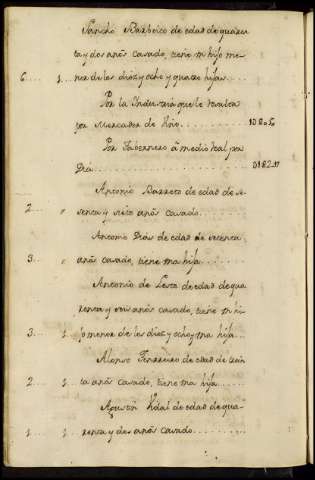 Sancho Barbeito de edad de quaren
ta y dos años casado, tiene un hijo me
6.... 1.. nor de los diez y ocho y quatro hijas....
Por la Industria que le resulta
por Mercader de Vino........
Por Tabernero a medio real por
Dia.............
Antonio Barreto de edad de se
2.... " senta y siete años casado.......
Antonio Dias de edad de setenta
3.... " años casado, tiene una hija......
Antonio de Lesta de edad de qua
renta y seis años casado, tiene un hi
3.... 1.. jo menor de los diez y ocho y una hija..
Alonso Ferreiro de edad de trein
2.... 1.. ta años casado, tiene una hija.....
Agustin Vidal de edad de qua
1.... 1.. renta y dos años casado.........